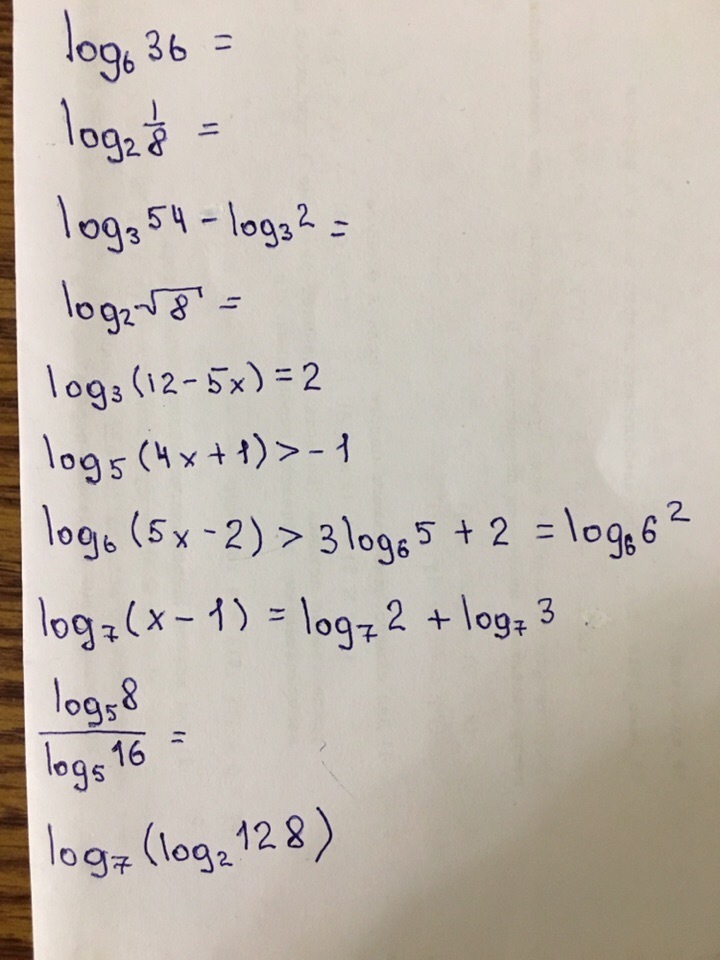 log₆ 36 =
log₂ 1/8 =
log₃ 54 - log₃ 2 =
log₂ √8 =
log₃ (12 - 5x) = 2
log₅ (4x + 1) > - 1
log₆ (5x - 2) > 3 log₆ 5 + 2 = log₆ 6²
log₇ (x - 1) = log₇ 2 + log₇ 3
log₅ 8 / log₅ 16 =
log₇ (log₂ 128)